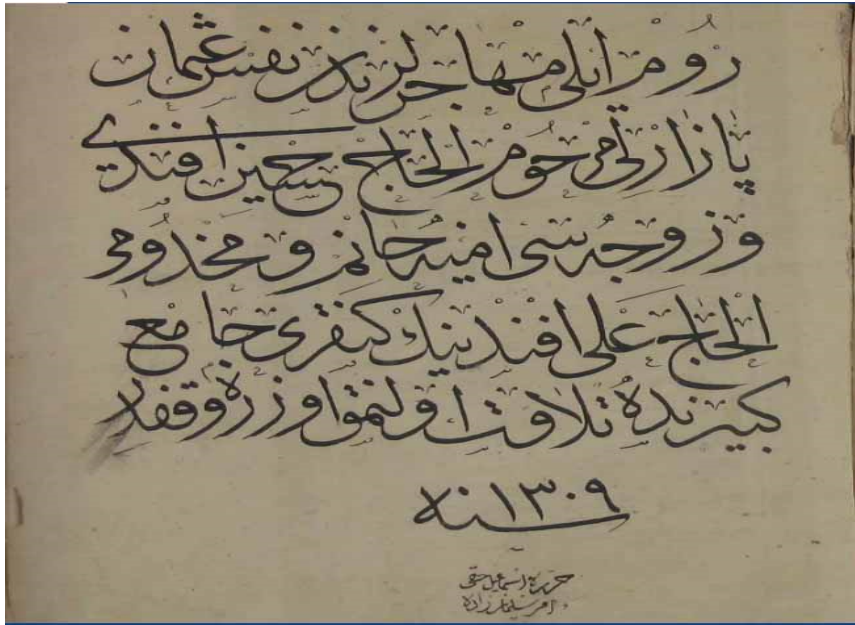 روم ايلى مهاجرلرندن نفس عثمان
پازارلى مرحوم الحاج حسين افندى
و زوجه سى امينه خانم و مخدومى
الحاج على افندينك كنقرى جامع
كبيرنده تلاوت اولنمق اوزره وقفدر
سنه ١٣٠٩
حرره اسماعيل حقى
زاده